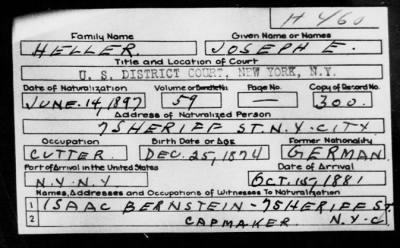 H 460
Family Name Given Name or Names
HELLER. JOSEPH E.
Title and Location of Court
U. S. DISTRICT COURT, NEW YORK, N.Y.
Date of Naturalization Volume or Bundle No. Page No. Copy of Record No.
JUNE. 14, 1897 59 — 300.
Address of Naturalized Person
7 SHERIFF ST. N.Y. CITY
Occupation Birth Date or Age Former Nationality
CUTTER DEC. 25, 1874 GERMAN.
Port of Arrival in the United States Date of Arrival
N.Y. N.Y. OCT. 1881
Names, Addresses and Occupations of Witnesses To Naturalization
1 ISAAC BERNSTEIN - 7 SHERIFF ST
2 CAPMAKER. N.Y.C.